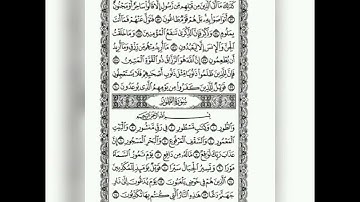 كَذَٰلِكَ مَا أَتَى الَّذِينَ مِن قَبْلِهِم مِّن رَّسُولٍ إِلَّا قَالُوا سَاحِرٌ أَوْ مَجْنُونٌ
أَتَوَاصَوْا بِهِ بَلْ هُمْ قَوْمٌ طَاغُونَ فَتَوَلَّ عَنْهُمْ فَمَا أَنتَ
بِمَلُومٍ وَذَكِّرْ فَإِنَّ الذِّكْرَىٰ تَنفَعُ الْمُؤْمِنِينَ وَمَا خَلَقْتُ
الْجِنَّ وَالْإِنسَ إِلَّا لِيَعْبُدُونِ مَا أُرِيدُ مِنْهُم مِّن رِّزْقٍ وَمَا أُرِيدُ
أَن يُطْعِمُونِ إِنَّ اللَّهَ هُوَ الرَّزَّاقُ ذُو الْقُوَّةِ الْمَتِينُ
فَإِنَّ لِلَّذِينَ ظَلَمُوا ذَنُوبًا مِّثْلَ ذَنُوبِ أَصْحَابِهِمْ فَلَا يَسْتَعْجِلُونِ
فَوَيْلٌ لِّلَّذِينَ كَفَرُوا مِن يَوْمِهِمُ الَّذِي يُوعَدُونَ
سُورَةُ الطُّورِ
بِسْمِ اللَّهِ الرَّحْمَٰنِ الرَّحِيمِ
وَالطُّورِ وَكِتَابٍ مَّسْطُورٍ فِي رَقٍّ مَّنشُورٍ وَالْبَيْتِ
الْمَعْمُورِ وَالسَّقْفِ الْمَرْفُوعِ وَالْبَحْرِ الْمَسْجُورِ إِنَّ
عَذَابَ رَبِّكَ لَوَاقِعٌ مَّا لَهُ مِن دَافِعٍ يَوْمَ تَمُورُ السَّمَاءُ
مَوْرًا وَتَسِيرُ الْجِبَالُ سَيْرًا فَوَيْلٌ يَوْمَئِذٍ لِّلْمُكَذِّبِينَ
الَّذِينَ هُمْ فِي خَوْضٍ يَلْعَبُونَ يَوْمَ يُدَعُّونَ إِلَىٰ نَارِ
جَهَنَّمَ دَعًّا هَٰذِهِ النَّارُ الَّتِي كُنتُم بِهَا تُكَذِّبُونَ